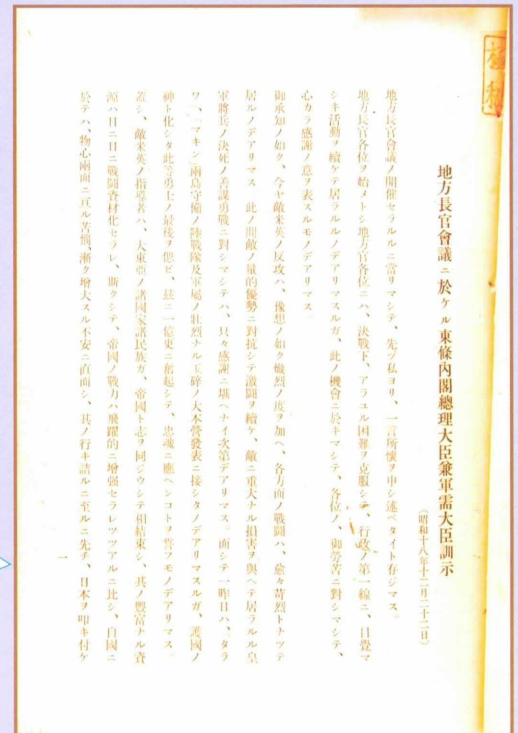 極秘
地方長官會議ニ於ケル東條內閣總理大臣兼軍需大臣訓示
(昭和十八年十二月二十二日)
地方長官會議ノ開催セラルルニ當リマシテ、先ヅ私ヨリ、一言所懷ヲ申シ述ベタイト存ジマス。
地方長官各位ヲ始メトシ地方官各位ニハ、決戰下、アラユル困難ヲ克服シテ、行政ノ第一線ニ、目覺マ
シキ活動ヲ續ケテ居ラルルノデアリマスルガ、此ノ機會ニ於キマシテ、各位ノ、御勞苦ニ對シマシテ、
心カラ感謝ノ意ヲ表スルモノデアリマス。
御承知ノ如ク、今ヤ敵米英ノ反攻ハ、豫想ノ如ク熾烈ノ度ヲ加ヘ、各方面ノ戰鬪ハ、愈々苛烈トナツテ
居ルノデアリマス 此ノ間敵ノ量的優勢ニ對抗シテ激鬪ヲ續ケ、敵ニ重大ナル損害ヲ與ヘテ居ラルル皇
軍將兵ノ決死ノ善謀勇戰ニ對シマシテハ、只々感謝ニ堪ヘナイ次第デアリマス。而シテ一昨日ハ、「タラ
ワ」、「マキン」兩島守備ノ陸戰隊及軍屬ノ壯烈ナル玉碎ノ大本營發表ニ接シタノデアリマスルガ、護國ノ
神ト化シタ此等勇士ノ最後ヲ偲ビ、玆ニ一億更ニ奮起シテ、忠魂ニ應ヘンコトヲ誓フモノデアリマス。
蓋シ、敵米英ノ指導者ハ、大東亞ノ諸國家諸民族ガ、帝國ト志ヲ同ジウシテ相結束シ、其ノ豐富ナル資
源ハ日ニ日ニ戰鬪資材化セラレ、斯クシテ、帝國ノ戰力ハ飛躍的ニ增强セラレツツアルニ比シ、自國ニ
於テハ、物心兩面ニ亘ル苦惱、漸ク增大スル不安ニ直面シ、其ノ行キ詰ルニ至ルニ先チ、日本ヲ叩キ付ケ
一